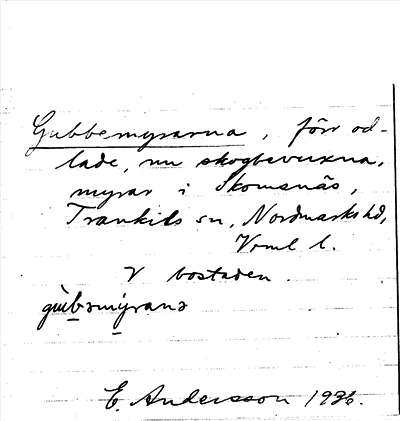 Gubbemyrarna, förr od-
lade, nu skogbevuxna,
myrar i Skomanäs,
Trankils sn, Nordmarks hd,
Vrml l.
V bostaden.
gùbəmy̆rana
E. Andersson 1936.